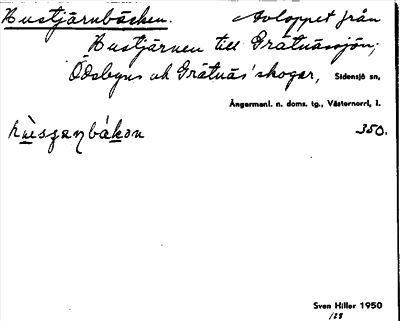 Hustjärnbäcken. Avloppet från
Hustjärnen till Gråtnässjön;
Ödsbyns och Gråtnäs' skogar, Sidensjö sn,
Ångermanl. n. doms. tg., Västernorrl. l.
350.
Sven Hiller 1950
128